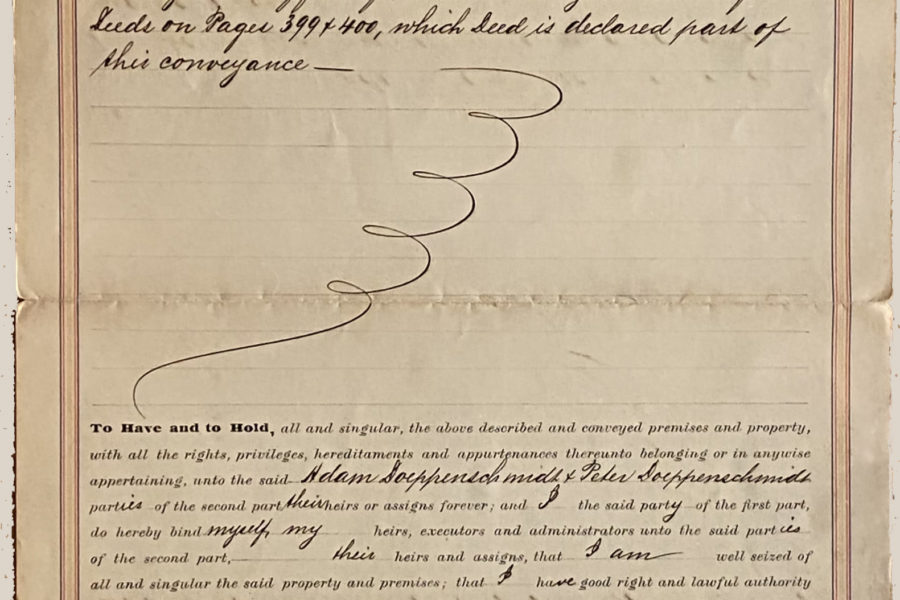 Deeds on Pages 399 & 400, which Deed is declared part of
this conveyance —
To Have and to Hold, all and singular, the above described and conveyed premises and property,
with all the rights, privileges, hereditaments and appurtenances thereunto belonging or in anywise
appertaining, unto the said Adam Doeppenschmidt & Peter Doeppenschmidt
parties of the second part their heirs or assigns forever; and I the said party of the first part,
do hereby bind myself, my heirs, executors and administrators unto the said parties
of the second part, their heirs and assigns, that I am well seized of
all and singular the said property and premises; that I have good right and lawful authority